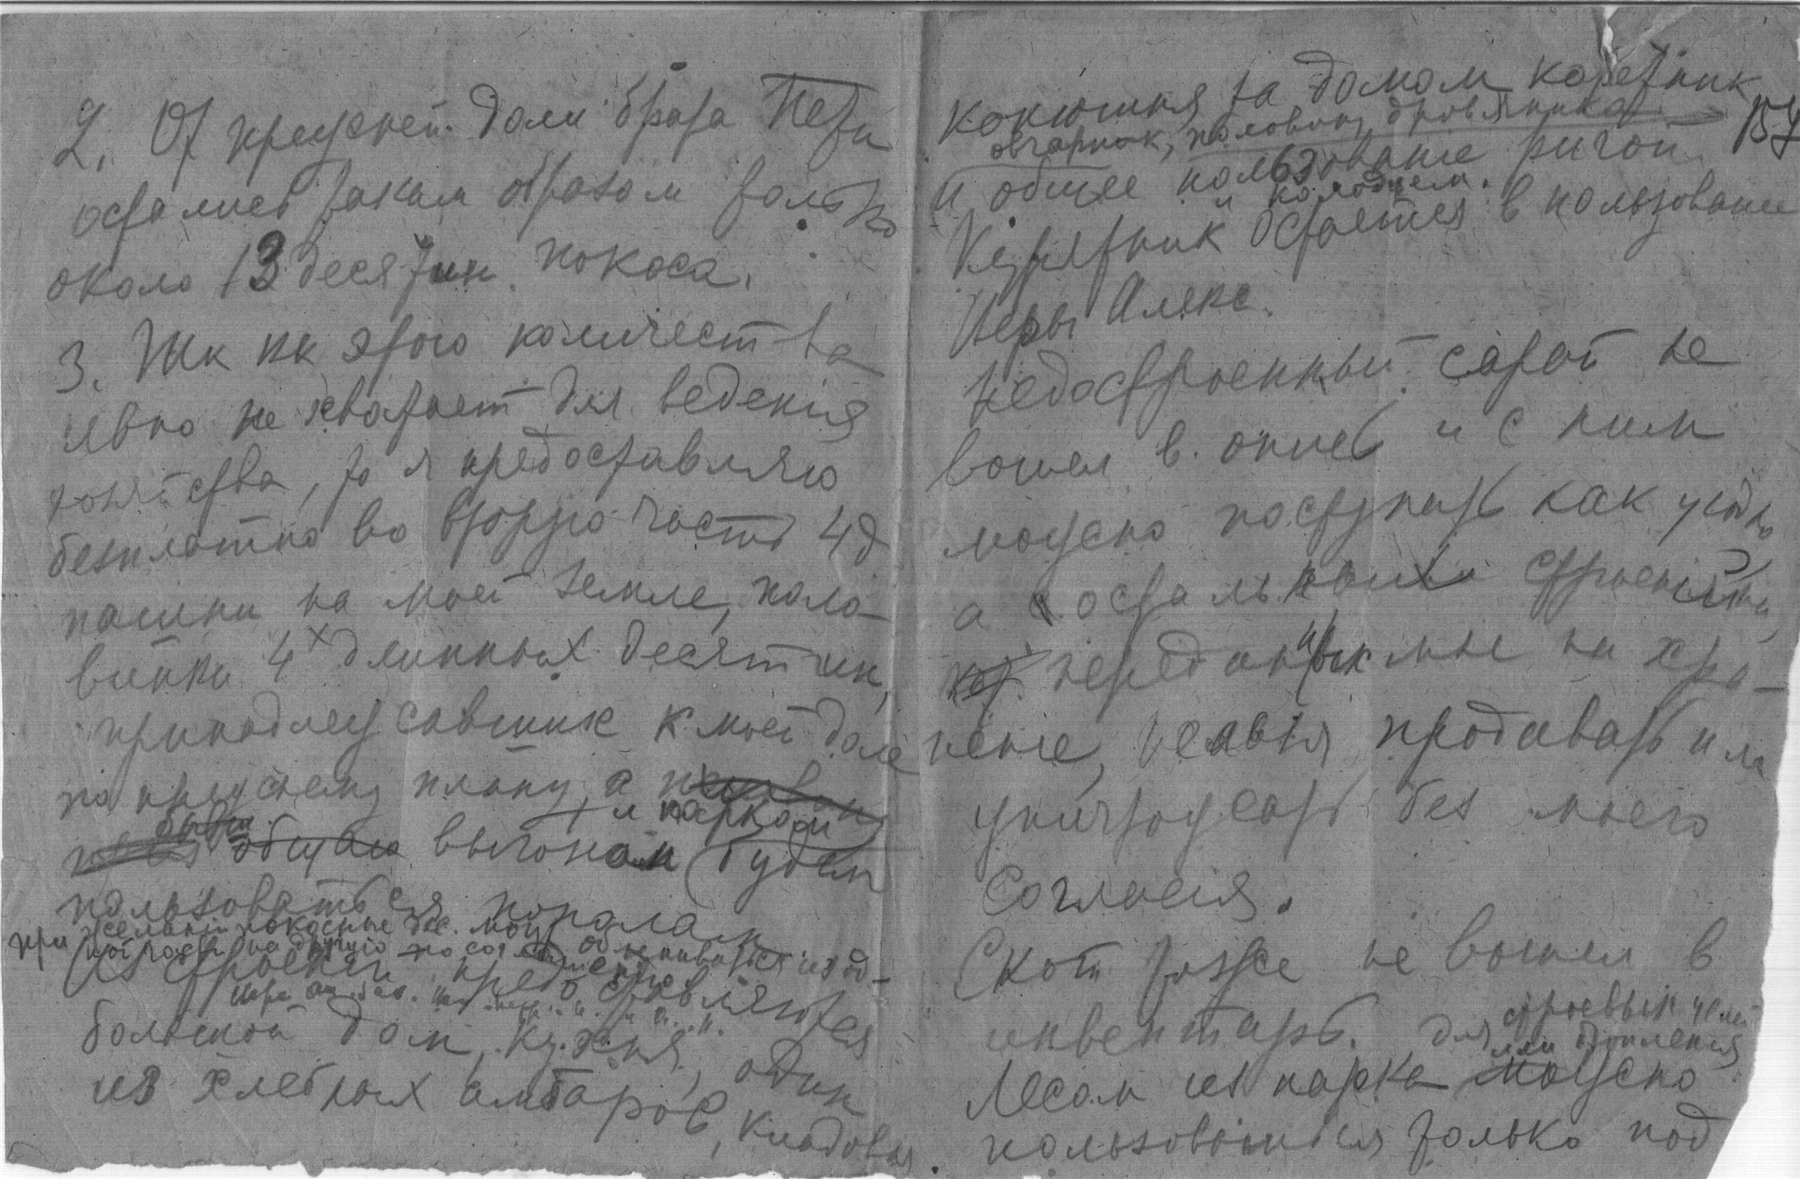 2. От прежней доли брата Пети
остались таким образом только
около 13 десятин покоса.
3. Так как этого количества
явно не хватает для ведения
хозяйства, то я предоставляю
безплатно во вторую часть 4 д
пашни на моей земле, поло-
винки 4х длинных десятин,
принадлежавших к моей доле
по прежнему плану, а
и парком
общим выгоном будем
пользоваться пополам
при желании покосные дес. могут
на другую обмениваться
Из строений предоставляются
большой дом, кухня, один
из хлебных амбаров, кладовая
конюшня за домом каретник
овчарник, половину дровяника
и общее пользование ригой
и колодцем.
Курятник остается в пользование
Веры Алекс.
Недостроенный сарай не
вошел в опись и с ним
можно поступать как угодно
а остальных строений,
переданных мне на хра-
нение, нельзя продавать или
уничтожать без моего
согласия.
Скот тоже не вошел в
инвентарь.
для строевых целей
или отопления
Лесом из парка можно
пользоваться только под